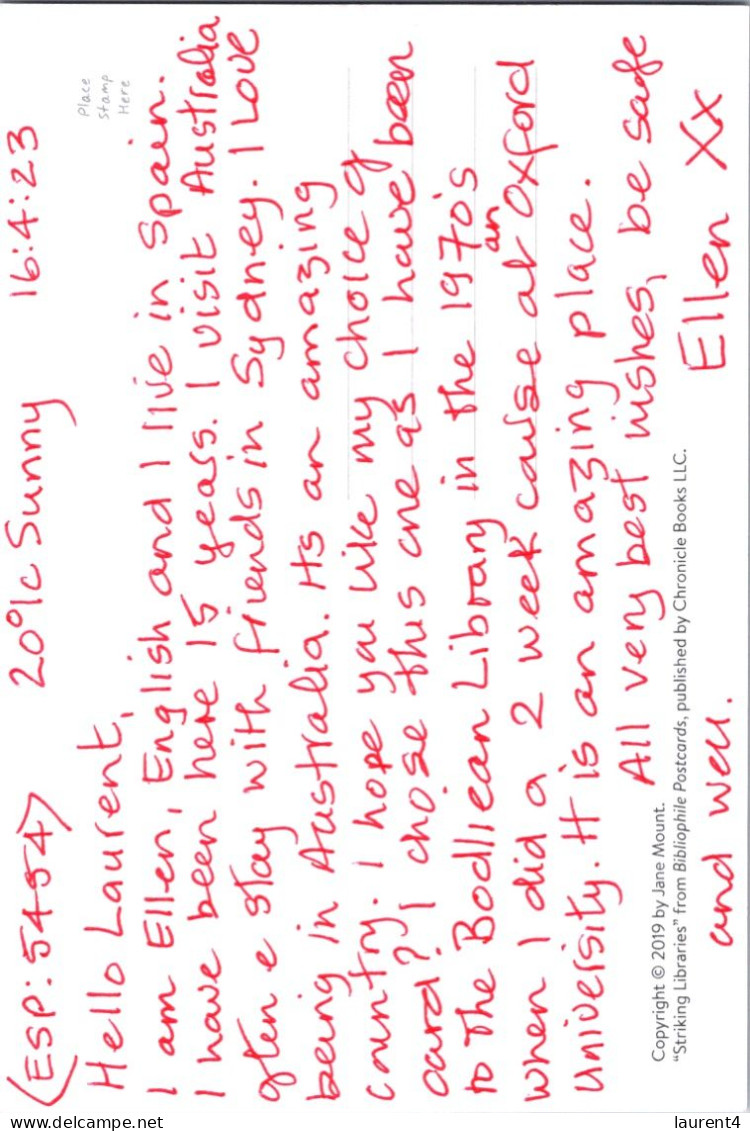 (ESP: 5454) 20°/c Sunny 16:4:23
Place
Stamp
Here
Hello Laurent,
I am Ellen, English and I live in Spain.
I have been here 15 years. I visit Australia
often e stay with friends in Sydney. I Love
being in Australia. Its an amazing
country. I hope you like my choice of
card? I chose this one as I have been
to The Bodliean Library in the 1970's
an
when I did a 2 week cause at Oxford
University. It is an amazing place.
All very best wishes, be safe
and well.
Ellen Xx
Copyright © 2019 by Jane Mount.
"Striking Libraries" from Bibliophile Postcards, published by Chronicle Books LLC.
www.delcampe.net
laurent4